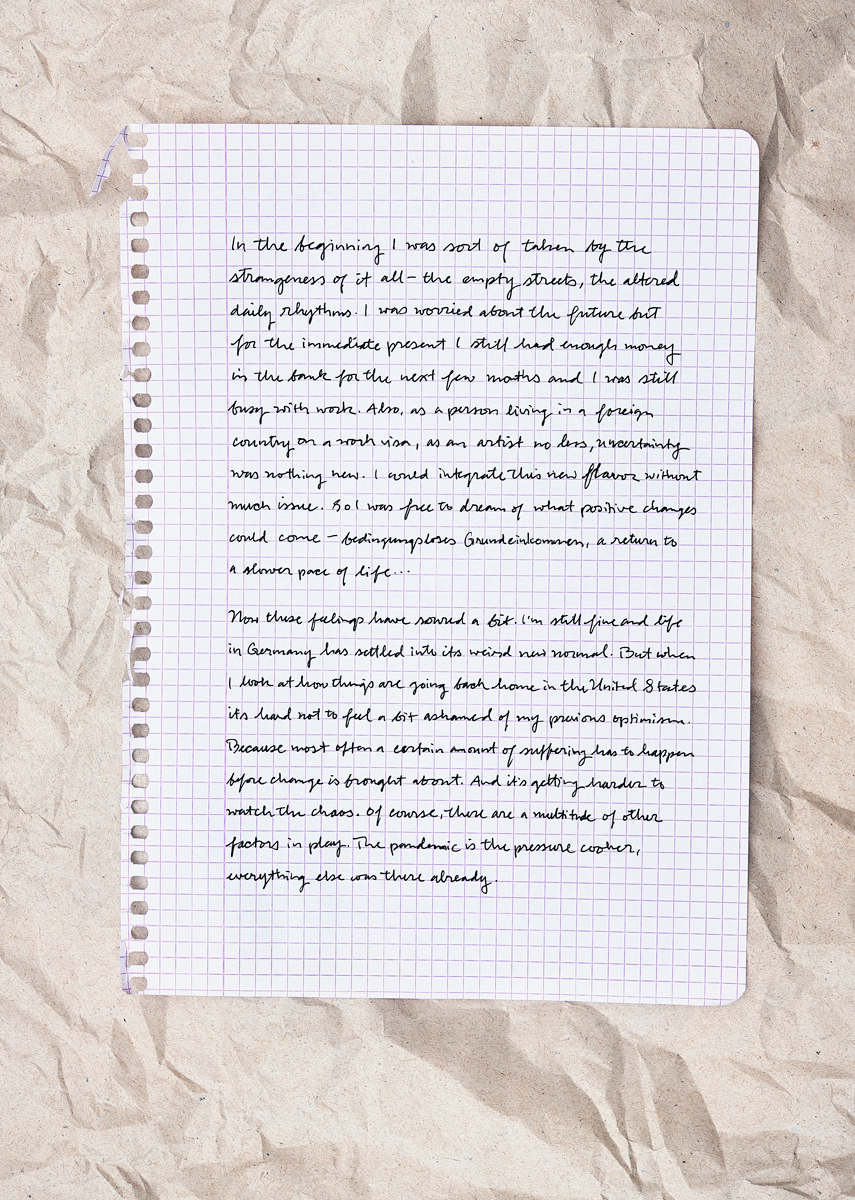 In the beginning I was sort of taken by the
strangeness of it all – the empty streets, the altered
daily rhythms. I was worried about the future but
for the immediate present I still had enough money
in the bank for the next few moths and I was still
busy with work. Also, as a person living in a foreign
country on a work visa, as an artist no less, uncertainty
was nothing new. I could integrate this new flavor without
much issue. So I was free to dream of what positive changes
could come – bedingungsloses Grundeinkommen, a return to
a slower pace of life...
Now these feelings have soured a bit. I'm still fine and life
in Germany has settled into its weird new normal. But when
I look at how things are going back home in the United States
its hard not to feel a bit ashamed of my previous optimism.
Because most often a certain amount of suffering has to happen
before change is brought about. And it's getting harder to
watch the chaos. Of course, there are a multitude of other
factors in play. The pandemic is the pressure cooker,
everything else was there already.